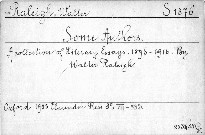 Raleigh, Walter S 1876
Some Authors.
A collection of Literary Essays. 1896-1916. By
Walter Raleigh
Oxford 1923 Clarendon Press 8°.